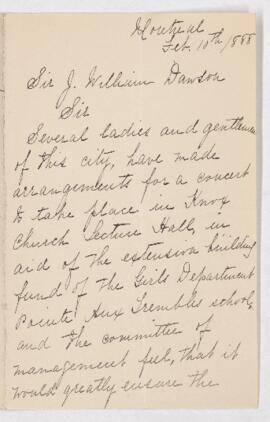 Montreal
Feb. 10th/1888
Sir J. William Dawson
Sir
Several ladies and gentlemen
of this city, have made
arrangements for a concert
to take place in Knox
Church Lecture Hall, in
aid of the extension building
fund of the Girls Department
Pointe Aux Trembles schools,
and the committee of
management feel, that it
would greatly ensure the